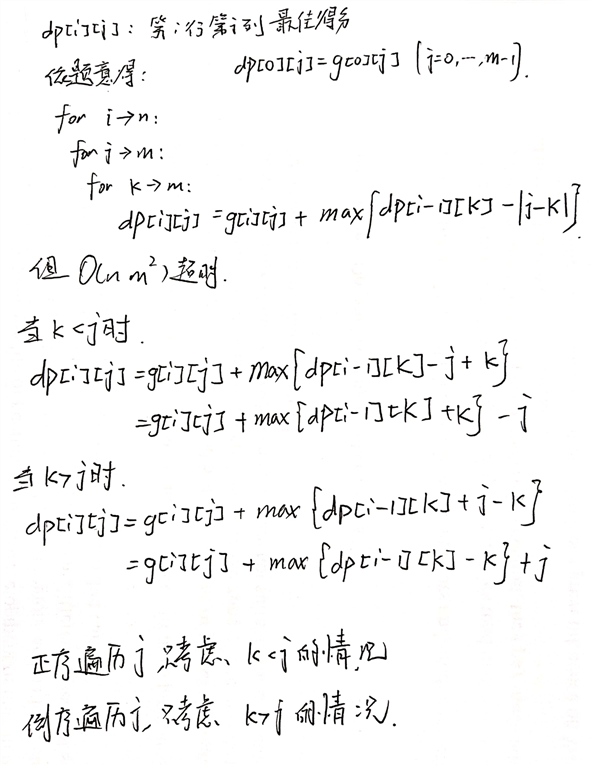 dp[i][j]: 第i行第j列最佳得分
依题意得: dp[0][j]=g[0][j] (j=0,…,m-1).
for i→n:
for j→m:
for k→m:
dp[i][j] = g[i][j] + max{dp[i-1][k] - |j-k|}.
但 O(n m²) 超时.
当 k<j时.
dp[i][j] = g[i][j] + max{dp[i-1][k] - j + k}
= g[i][j] + max{dp[i-1][k] + k} - j
当 k>j时.
dp[i][j] = g[i][j] + max {dp[i-1][k] + j - k}
= g[i][j] + max {dp[i-1][k] - k} + j
正序遍历j,只考虑、k<j的情况
倒序遍历j,只考虑、k>j的情况.